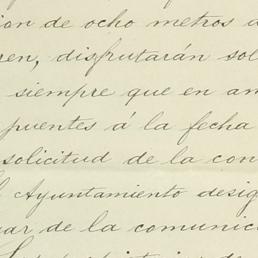 ion de ocho metros
en, disfrutarán sol
siempre que en am
puentes á la fecha
solicitud de la con
Ayuntamiento desig
ar de la comunica